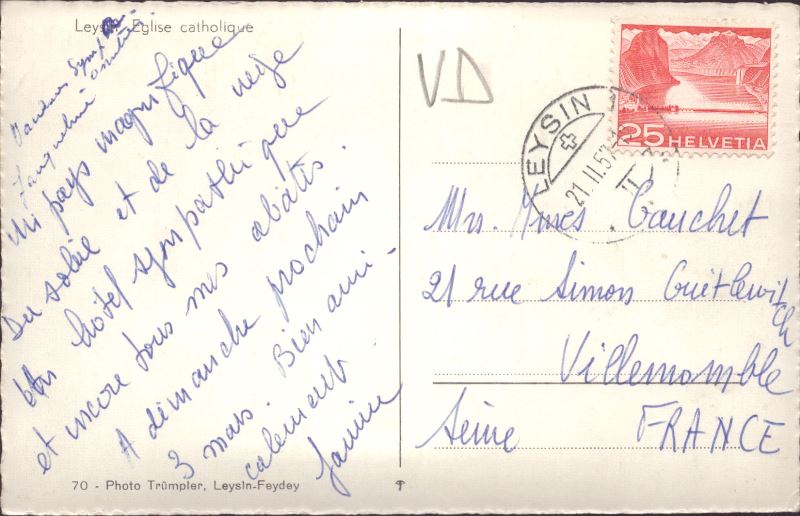 Leysin Eglise catholique
Un pays magnifique
Du soleil et de la neige
Un hôtel sympathique
et encore tous mes abatis.
A dimanche prochain
3 mars. Bien ami-
calement
Janine
Jacqueline
VD
LEYSIN
21.II.57
25 HELVETIA
Mrs. Ymes Gauchet
21 rue Simon Guitlewitch
Villemomble
Seine FRANCE
70 - Photo Trümpler, Leysin-Feydey